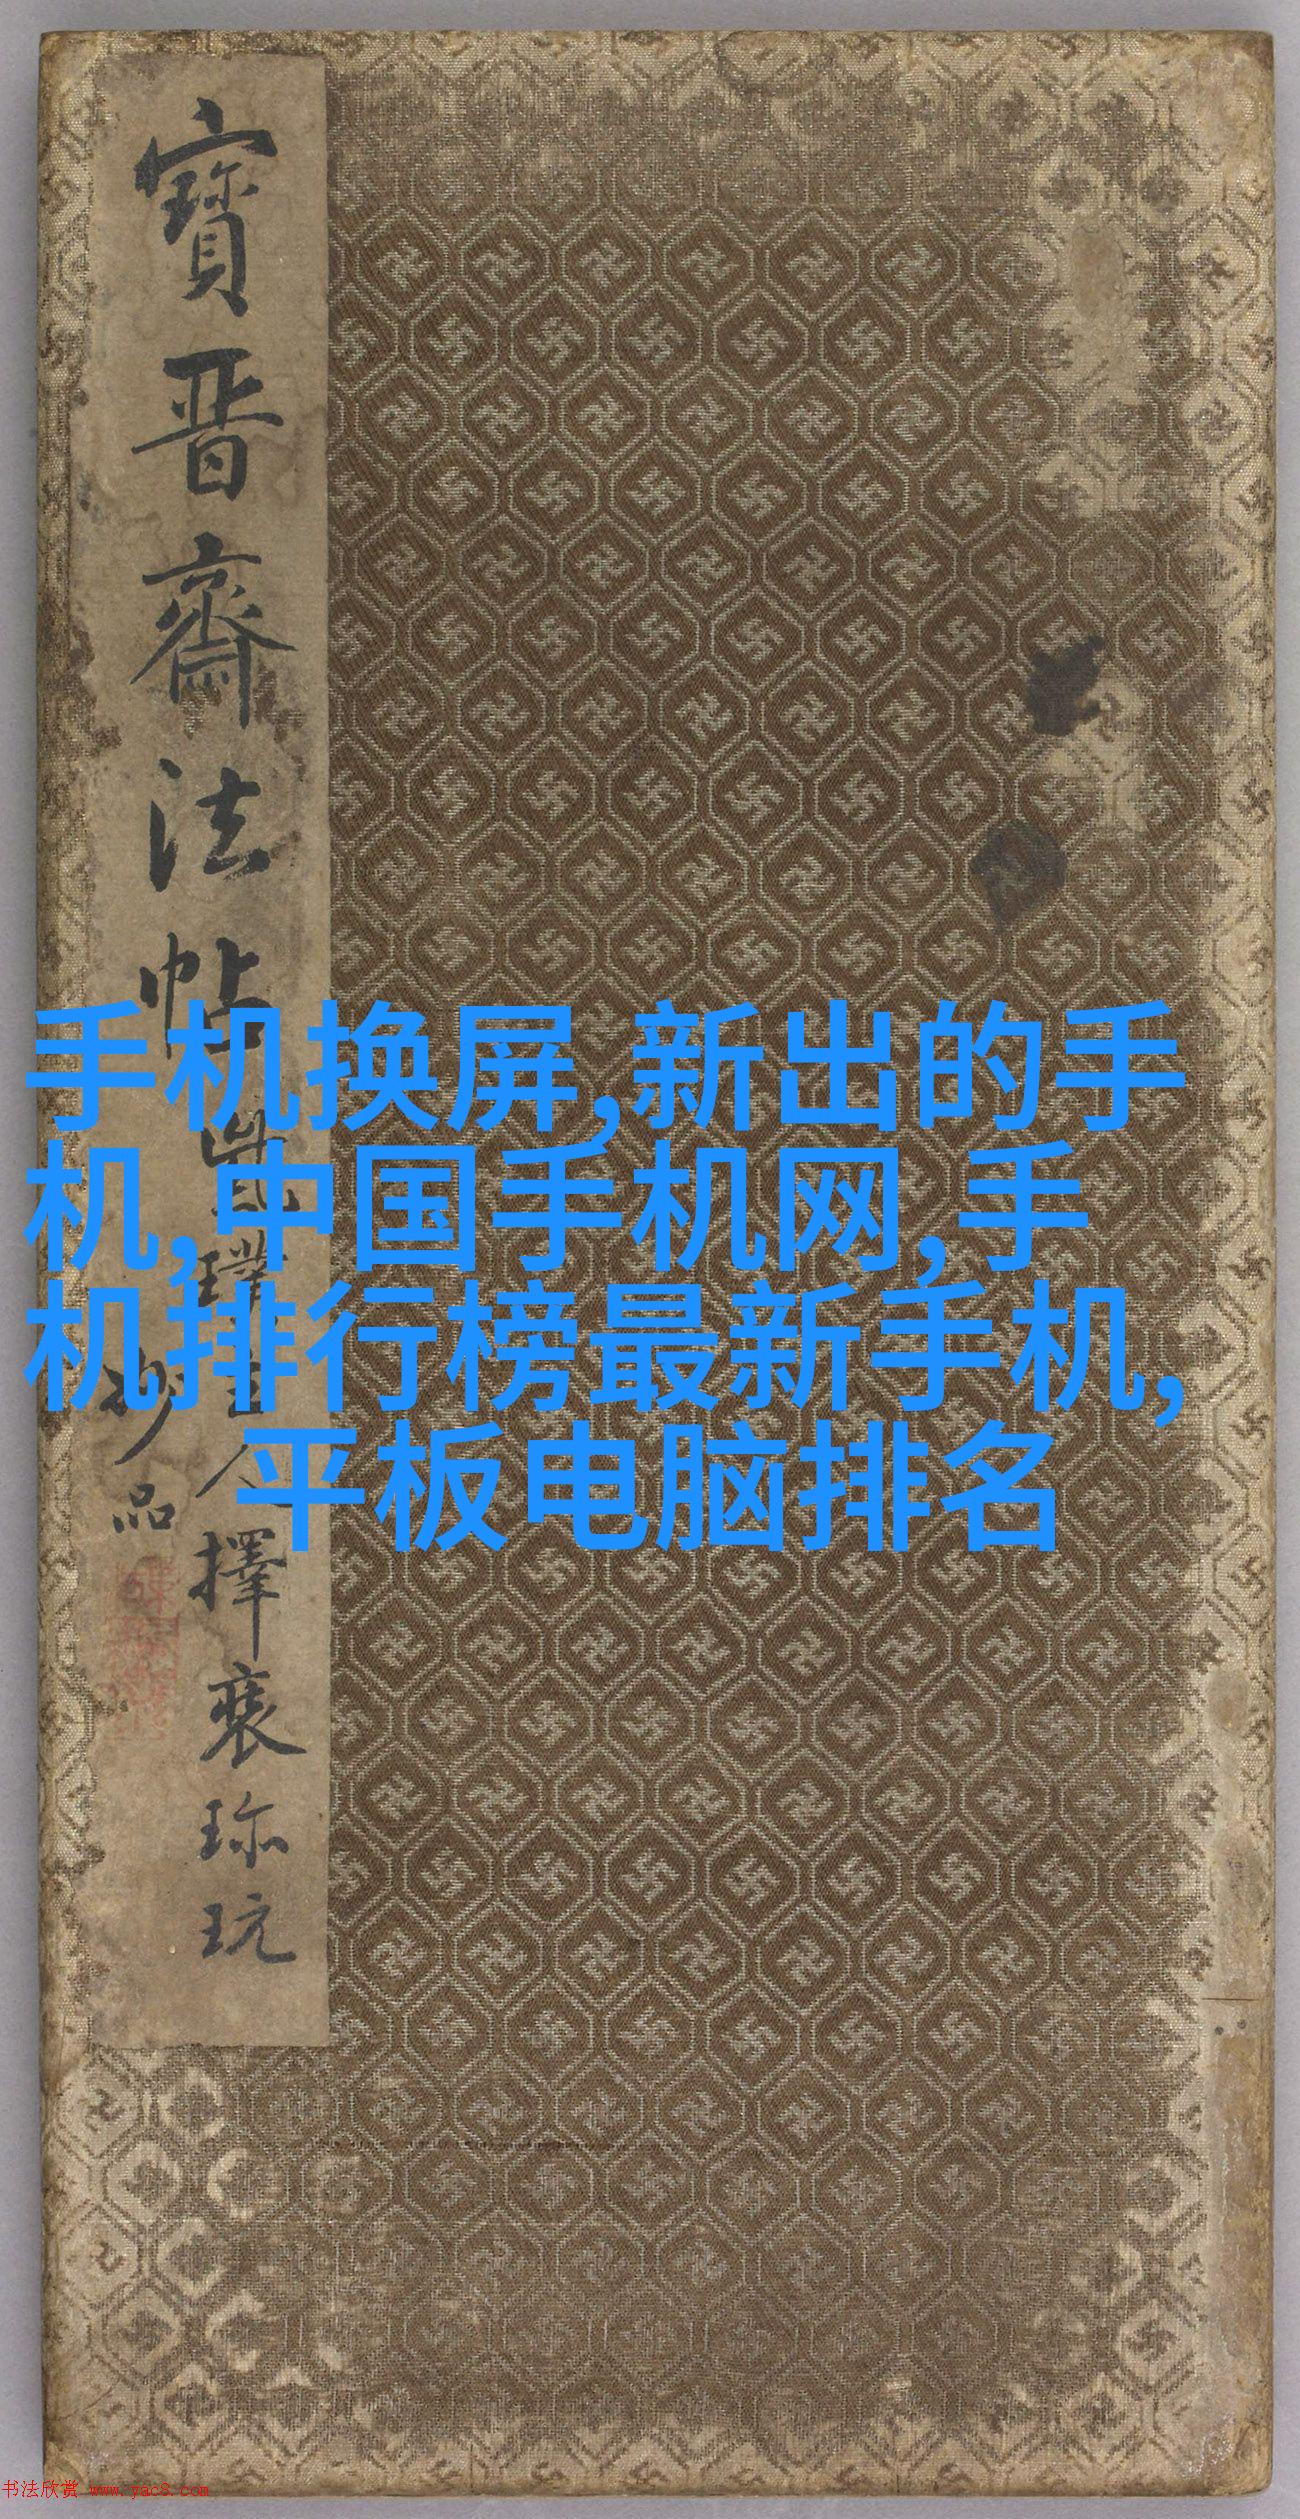 寶晋齋法帖
擇裘珎玩
品
手机换屏,新出的手
机,中国手机网,手
机排行榜最新手机,
平板电脑排名
书法欣赏 www.yac8.com